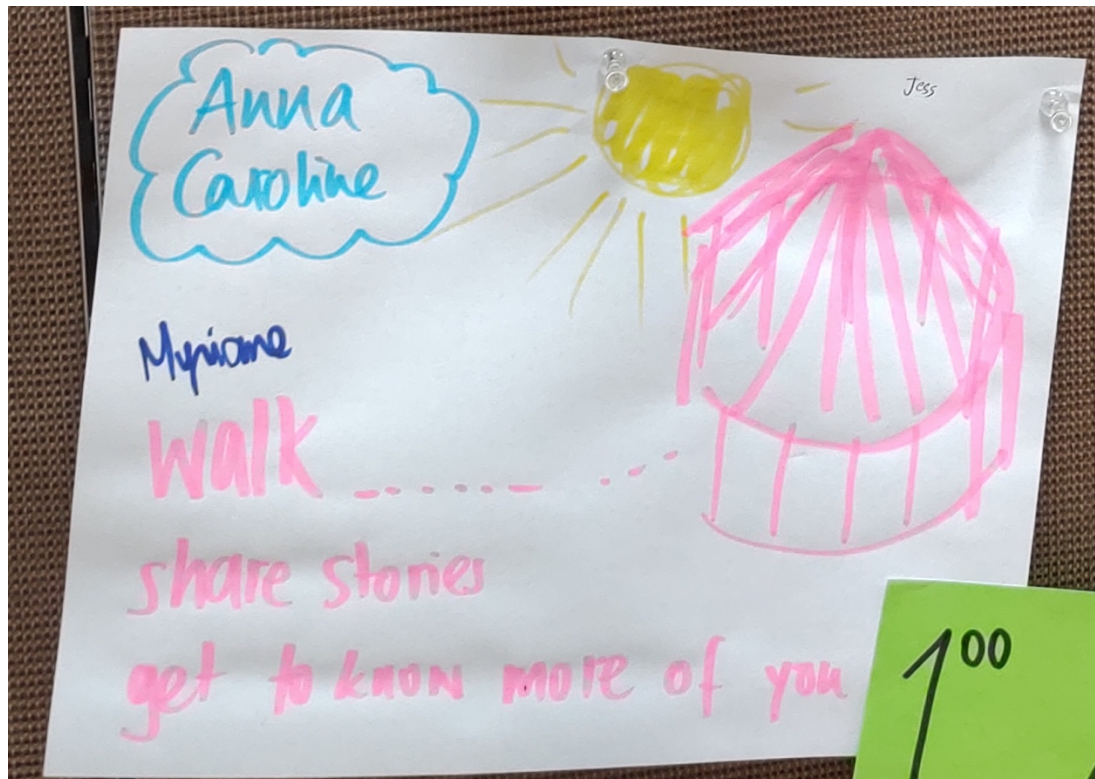 Anna
Caroline
Jess
Myriame
walk
share stories
get to know more of you
1⁰⁰